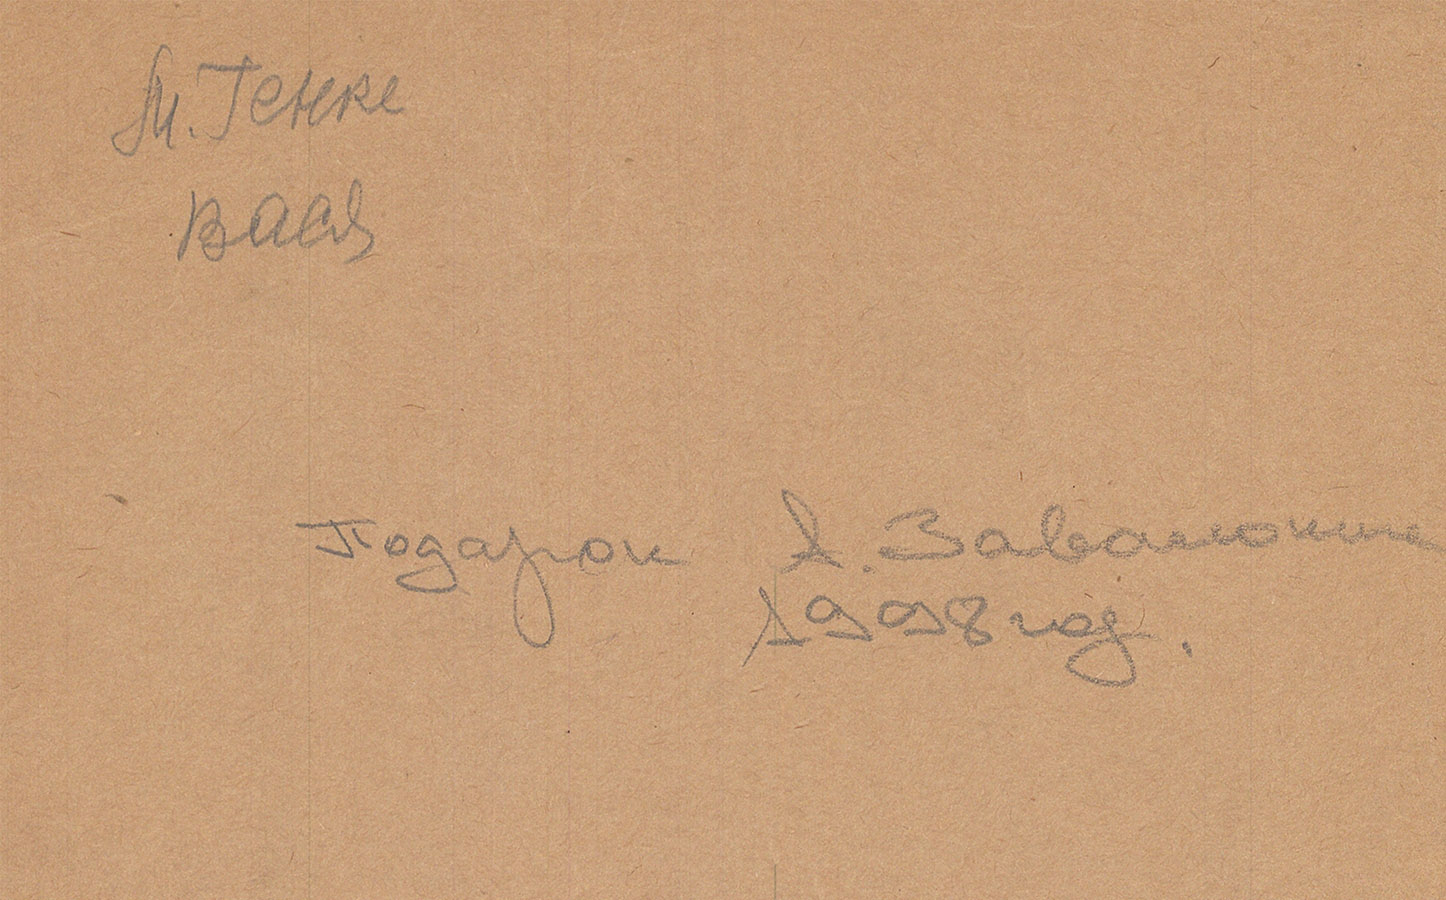 М. Генке
Вася
Подарок А. Завалокине
1998 год.